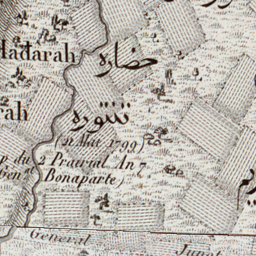 Hadarah
حضاره
rah
تنتوره
(21 Mai 1799)
p. du 2 Prairial An 7
Gen.al Bonaparte)
General Junot